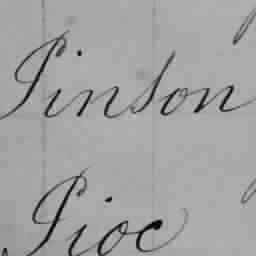 Pinson
Pioc